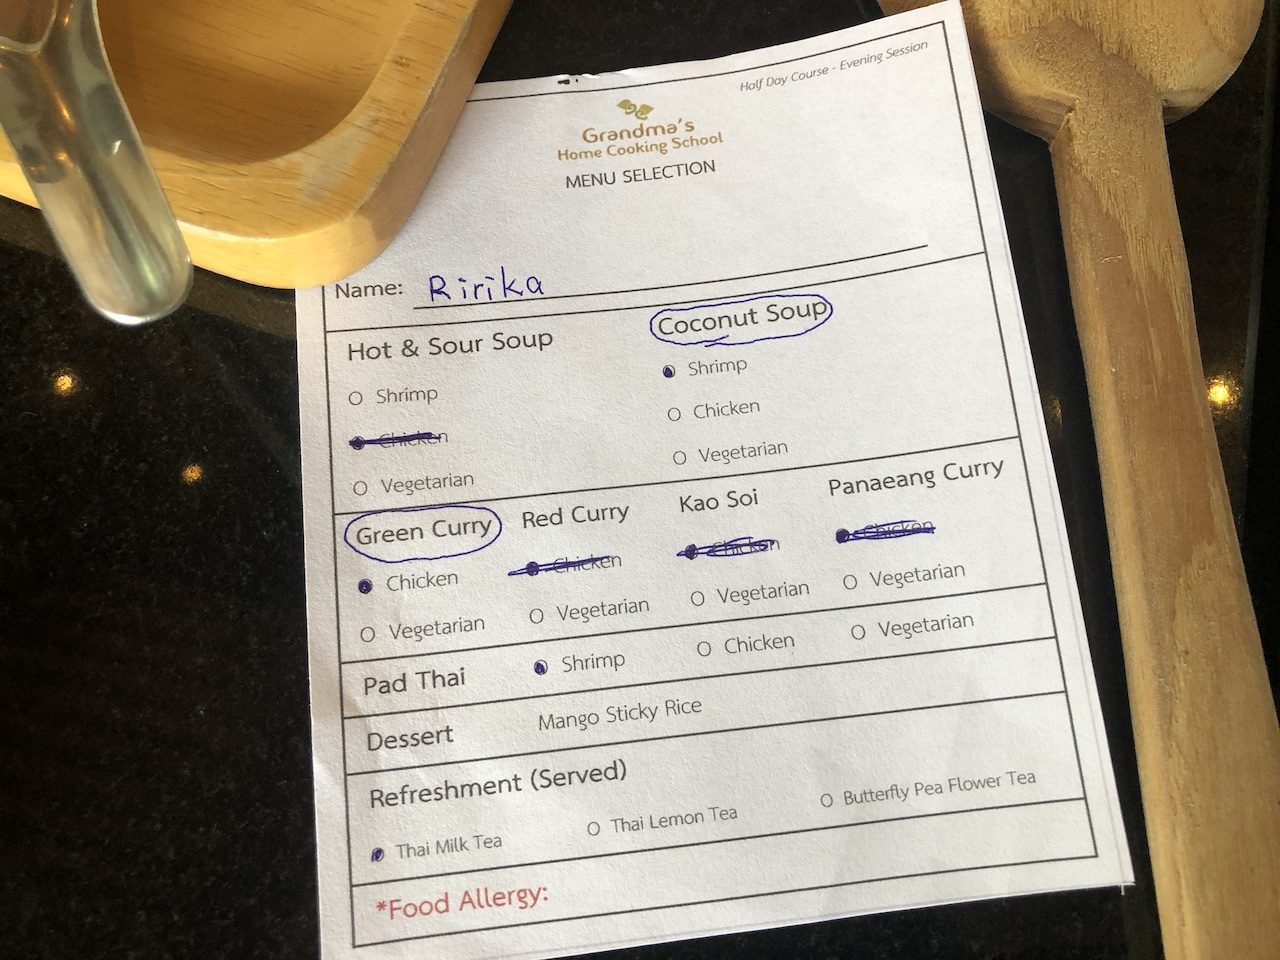 Half Day Course - Evening Session
Grandma's
Home Cooking School
MENU SELECTION
Name: Ririka
Hot & Sour Soup
Shrimp
Chicken
Vegetarian
Coconut Soup
Shrimp
Chicken
Vegetarian
Green Curry
Chicken
Vegetarian
Red Curry
Chicken
Vegetarian
Kao Soi
Chicken
Vegetarian
Panaeang Curry
Chicken
Vegetarian
Pad Thai Shrimp Chicken Vegetarian
Dessert Mango Sticky Rice
Refreshment (Served)
Thai Milk Tea Thai Lemon Tea Butterfly Pea Flower Tea
*Food Allergy: